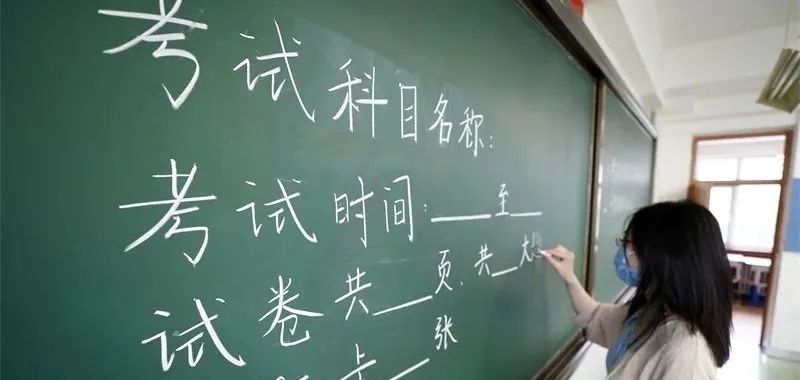 考试科目名称:
考试时间:___至___
试卷共___页、共___大
卡___张